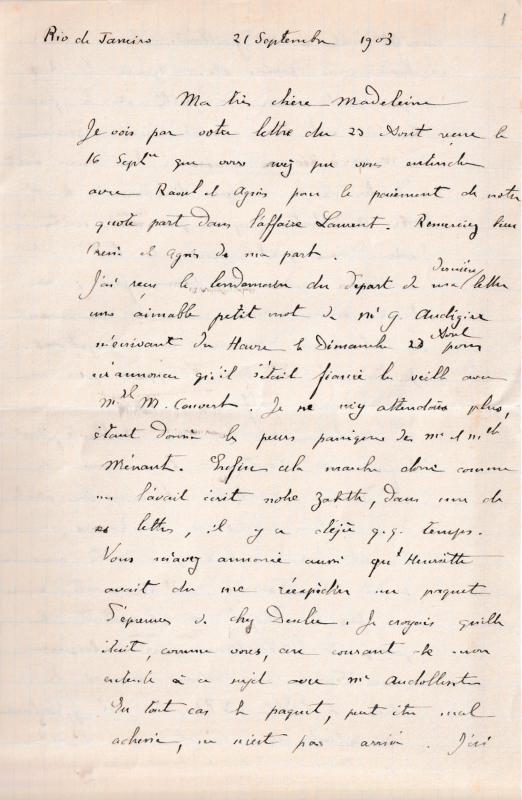 1
Rio de Janeiro 21 Septembre 1903
Ma très chère Madeleine
Je vois par votre lettre du 23 Aout reçue le
16 Septre que vous avez pu vous entendre
avec Raoul et Agnès pour le paiement de notre
quote part dans l'affaire Laurent. Remerciez bien
René et Agnès de ma part.
J'ai reçu le lendemain du départ de ma dernière lettre
une aimable petit mot de Mr G. Audigier
m'écrivant du Havre le Dimanche 23 Aout pour
m'annoncer qu'il s'était fiancé la veille avec
Melle M. Couvert. Je ne m'y attendais plus,
étant donné les peurs paniques de Mr et Melle
Ménant. Enfin cela marche donc comme
me l'avait écrit notre Zabeth, dans une de
ses lettres, il y a déjà q.q. temps.
Vous m'avez annoncé aussi qu'Henriette
avait du me réexpédier un paquet
d'épreuves de chez . Je croyais qu'elle
était, comme vous, au courant de mon
entente à ce sujet avec Mr Audollent
En tout cas le paquet, peut être mal
adressé, ne m'est pas arrivé. J'ai